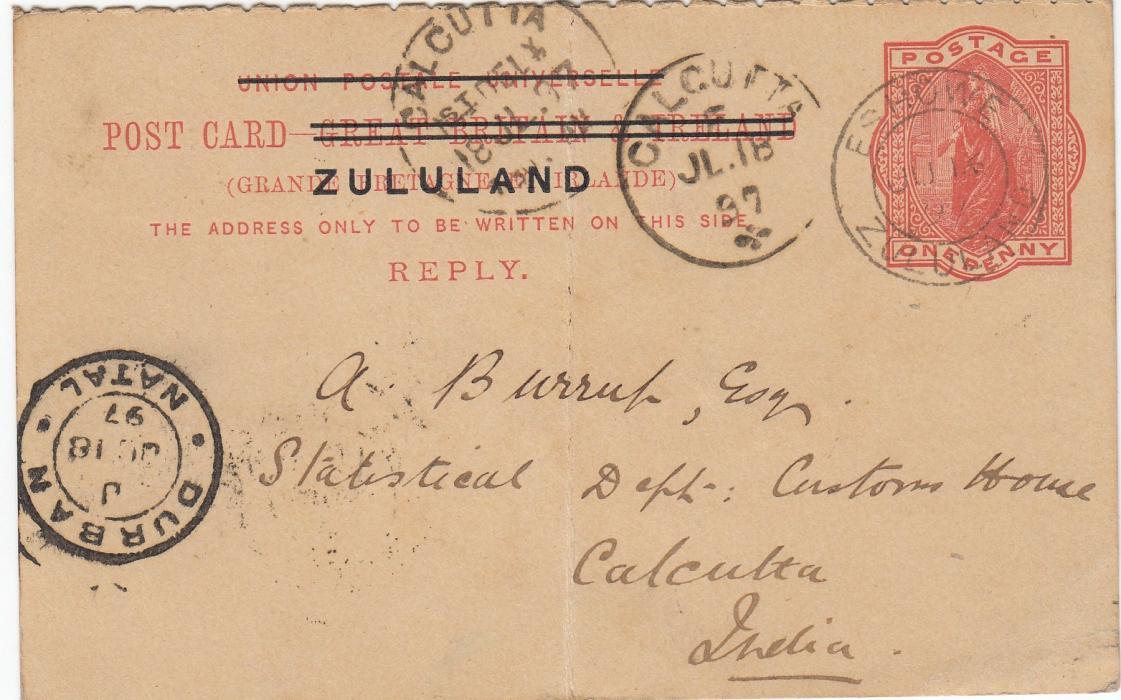 POSTAGE
UNION POSTALE UNIVERSELLE
POST CARD—GREAT BRITAIN & IRELAND
(GRANDE BRETAGNE ET IRLANDE)
ZULULAND
THE ADDRESS ONLY TO BE WRITTEN ON THIS SIDE.
REPLY.
ONE PENNY
CALCUTTA
CALCUTTA
JL.18
97
ESHOWE
ZULULAND
DURBAN
NATAL
97
JU 18
J
A. Burrup, Esq.
Statistical Dept: Customs House
Calcutta
India.